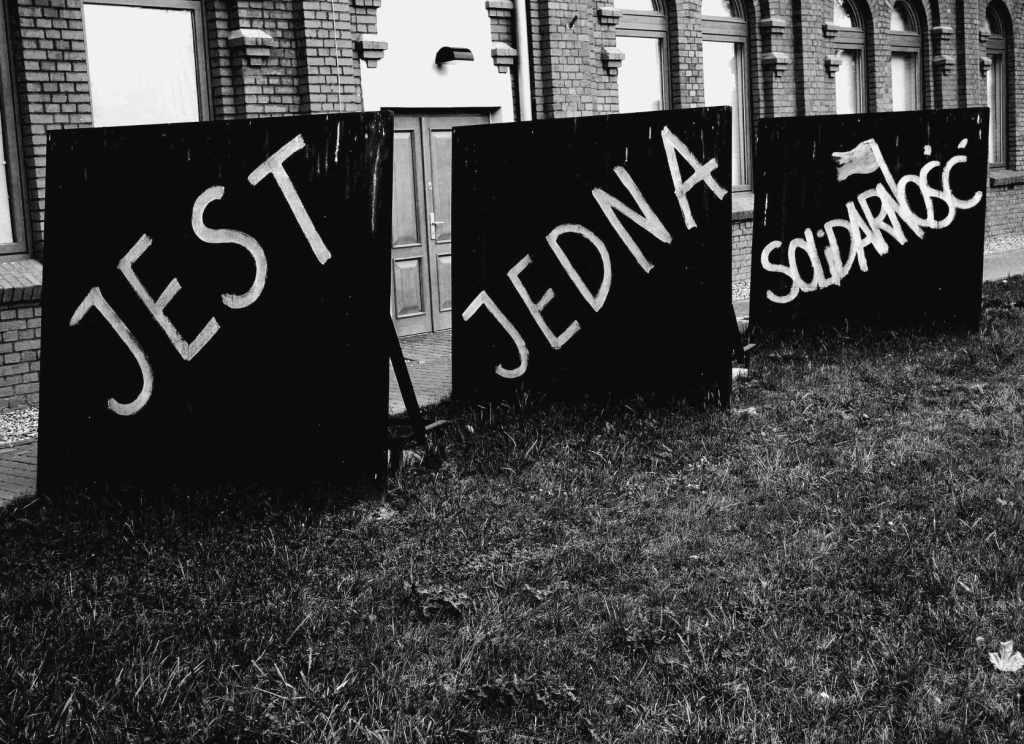 JEST
JEDNA
SOLiDARNOŚĆ